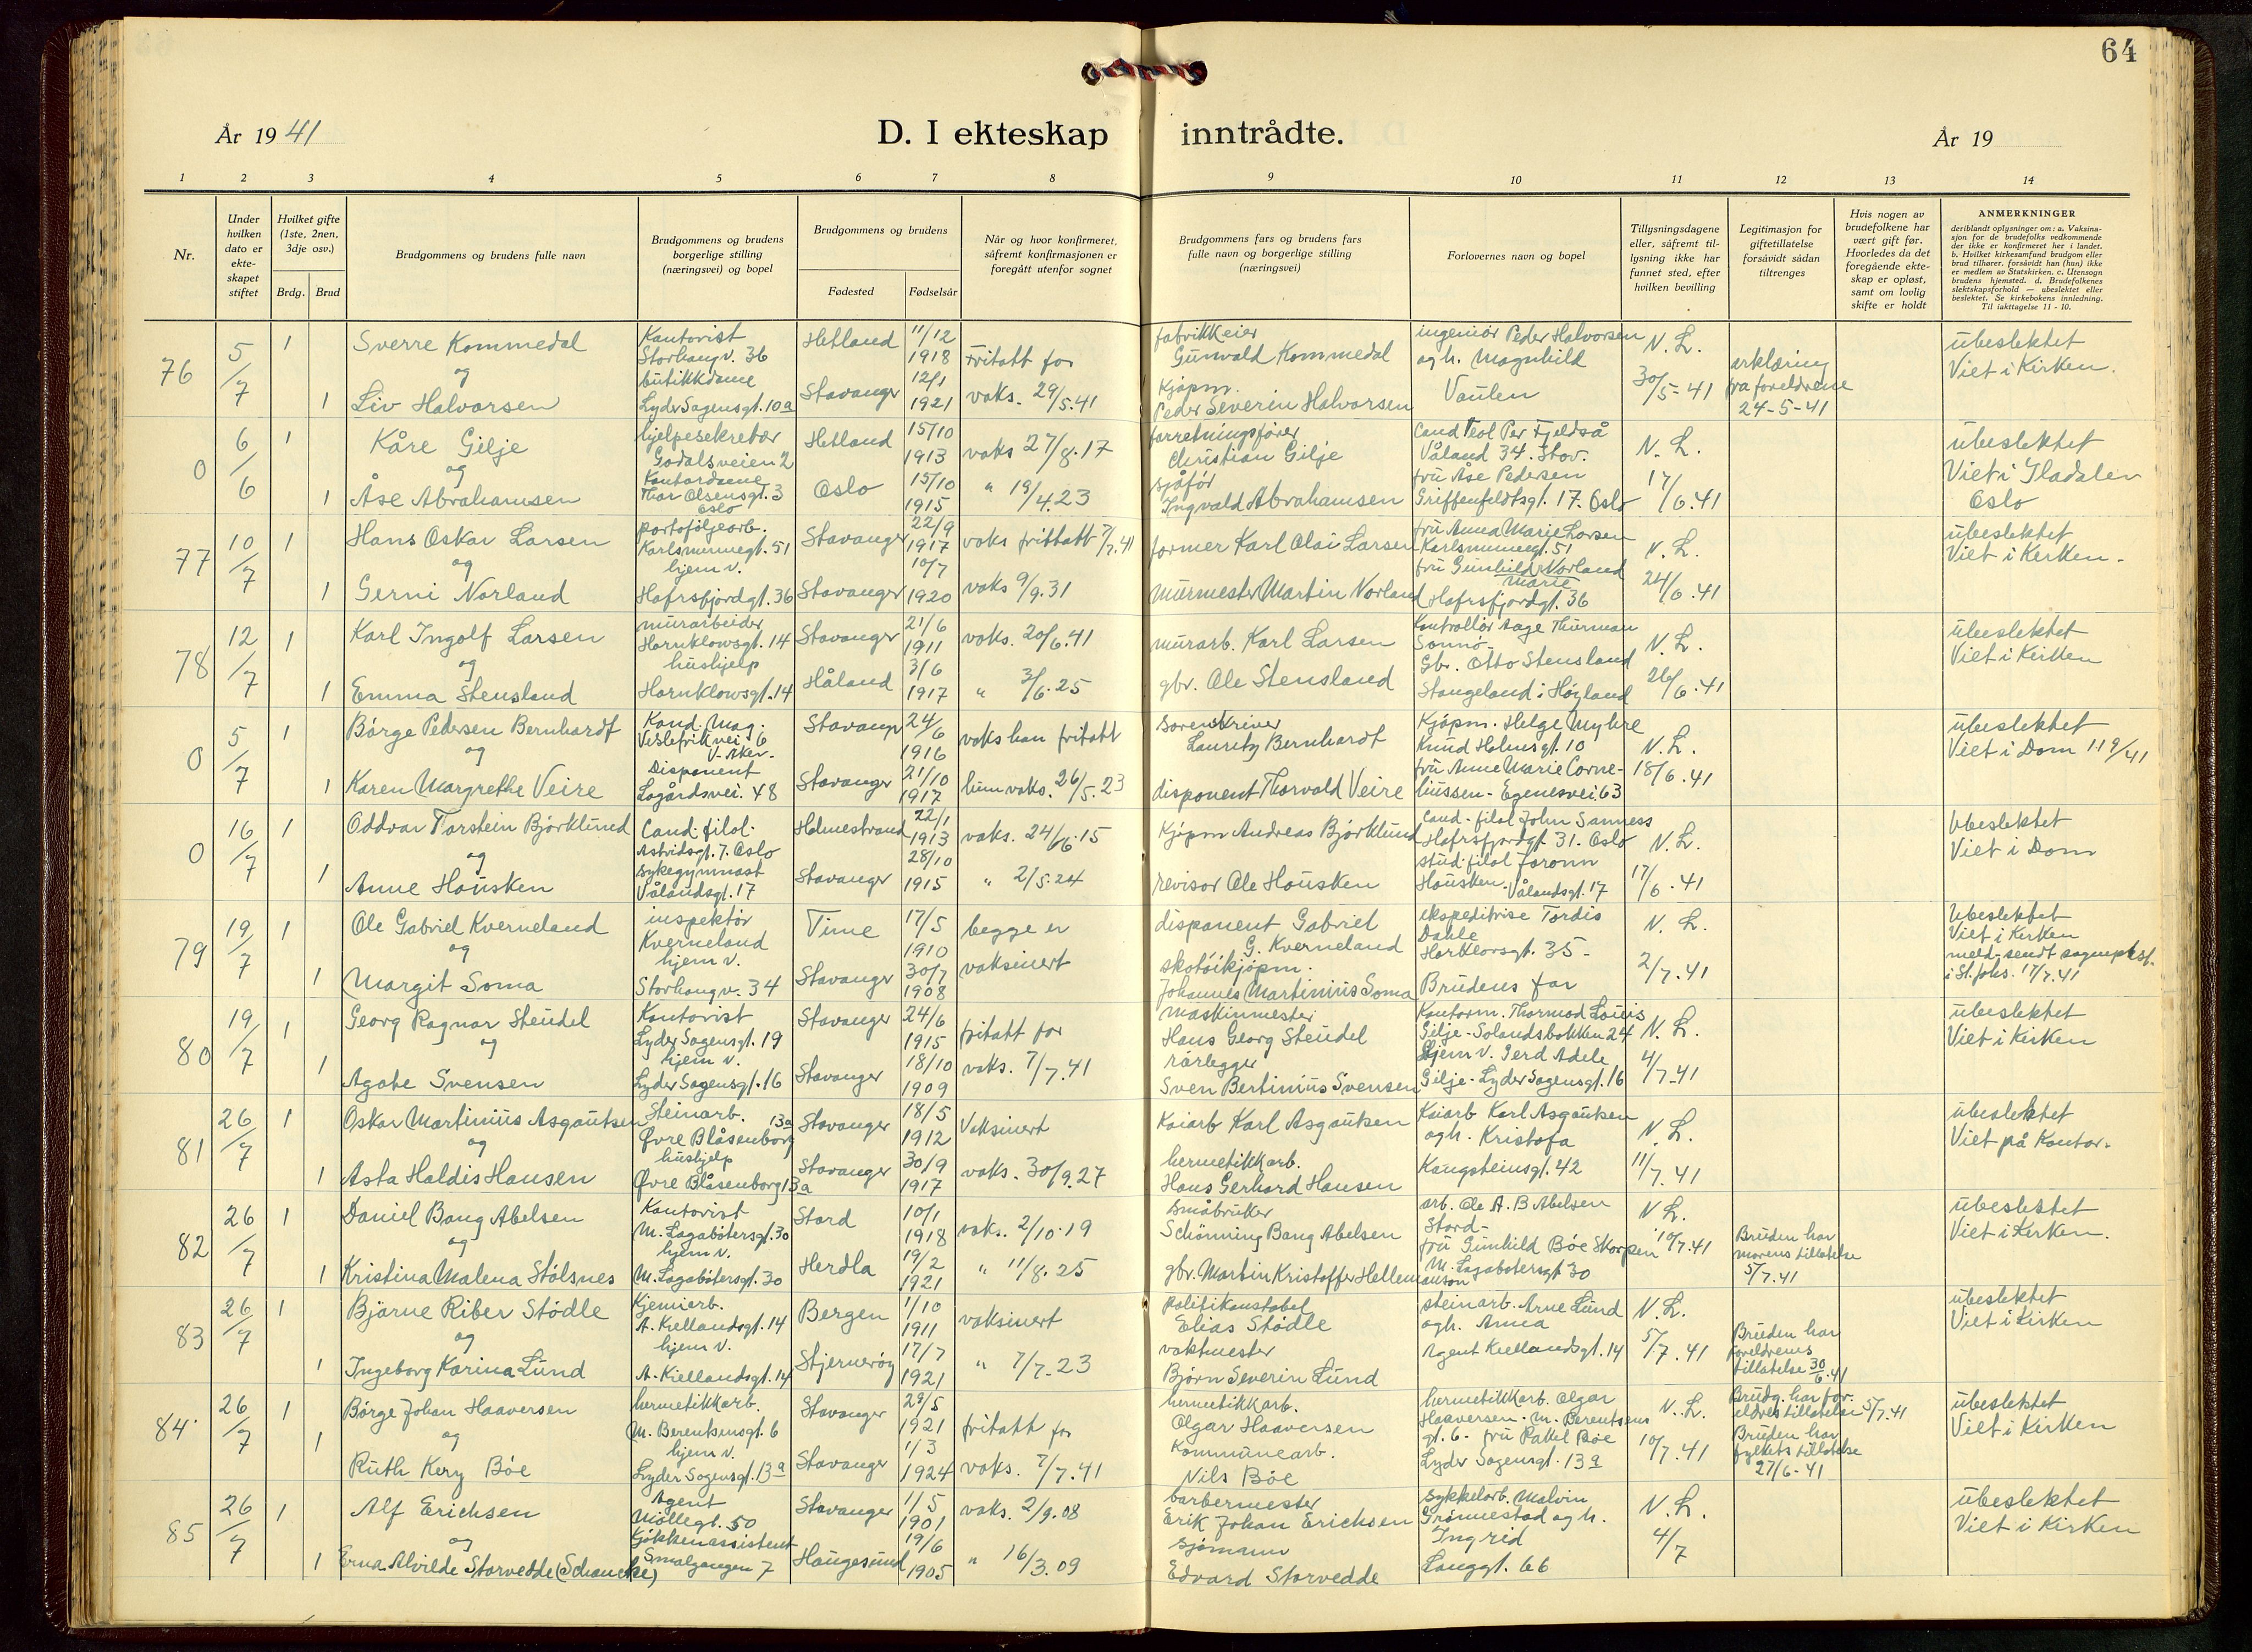 64
År 1941
D. I ekteskap inntrådte.
År 19
1 2 3 4 5 6 7 8 9 10 11 12 13 14
Nr.
Under hvilken dato er ekte-skapet stiftet
Hvilket gifte (1ste, 2nen, 3dje osv.)
Brdg. Brud
Brudgommens og brudens fulle navn
Brudgommens og brudens borgerlige stilling (næringsvei) og bopel
Brudgommens og brudens
Fødested Fødselsår
Når og hvor konfirmeret, såfremt konfirmasjonen er foregått utenfor sognet
Brudgommens fars og brudens fars fulle navn og borgerlige stilling (næringsvei)
Forlovernes navn og bopel
Tillysningsdagene eller, såfremt til-lysning ikke har funnet sted, efter hvilken bevilling
Legitimasjon for giftetillatelse forsåvidt sådan tiltrenges
Hvis nogen av brudefolkene har vært gift før. Hvorledes da det foregående ekte-skap er opløst, samt om lovlig skifte er holdt
ANMERKNINGER
deriblandt oplysninger om: a. Vaksina-sjon for de brudefolks vedkommende der ikke er konfirmeret her i landet. b. Hvilket kirkesamfund brudgom eller brud tilhører, forsåvidt han (hun) ikke er medlem av Statskirken. c. Utensogn brudens hjemsted. d. Brudefolkenes slektskapsforhold — ubeslektet eller beslektet. Se kirkebokens innledning. Til iakttagelse 11 - 10.
76 5/7 1 Sverre Kommedal Kontorist Storhaugv. 36 Hetland 11/12 1918 Fritatt for fabrikkeier Gunvald Kommedal ingeniør Peder Halvorsen og h. Magnhild N. L. ubeslektet
og
1 Liv Halvorsen butikkdame Lyder Sagensgt. 10a Stavanger 12/1 1921 vaks. 29/5.41 Kjøpm. Peder Severin Halvorsen Vaulen 30/5-41 erklæring fra foreldrene 24-5-41 Viet i Kirken.
0 6/6 1 Kåre Gilje hjelpesekretær Godalsveien 2 Hetland 15/10 1913 vaks 27/8.17 forretningsfører Christian Gilje Cand Teol Per Fjeldså Våland 34. Stav. N. L. ubeslektet
og
1 Åse Abrahamsen Kontordame Thor Olsensgt. 3 Oslo Oslo 15/10 1915 " 19/4.23 sjåfør Ingvald Abrahamsen fru Åse Pedersen Griffenfeldtsgt. 17. Oslo 17/6.41 Viet i Oslo
77 10/7 1 Hans Oskar Larsen portoføljearb. Karlsminnegt. 51 Stavanger 22/9 1917 vaks fritatt 7/7.41 former Karl Olai Larsen fru Anna Marie Larsen Karlsminnegt. 51 N. L. ubeslektet
og
1 Gerni Norland hjem v. Hafrsfjordgt. 36 Stavanger 10/7 1920 vaks 9/9.31 murmester Martin Norland fru Gunhild Marie Norland Hafrsfjordgt. 36 24/6.41 Viet i Kirken.
78 12/7 1 Karl Ingolf Larsen murarbeider Hornklowsgt. 14 Stavanger 21/6 1911 vaks. 20/6.41 murarb. Karl Larsen Kontrollør Aage Thurman N. L. ubeslektet
og
1 Emma Stensland hushjelp Hornklowsgt. 14 Håland 3/6 1917 " 3/6.25 gbr. Ole Stensland Gbr. Otto Stensland Stangeland i Høyland 26/6.41 Viet i Kirken
0 5/7 1 Børge Pedersen Bernhardt Kand. Mag. Veslefrikvei 6 V-Aker. Stavanger 24/6 1916 vaks han fritatt sorenskriver Lauritz Bernhardt Kjøpm. Helge Myhre Knud Holmsgt. 10 N. L. ubeslektet
og
1 Karen Margrethe Veire Disponent Lagårdsvei. 48 Stavanger 21/10 1917 hun vaks. 26/5.23 disponent Thorvald Veire fru Anne Marie Corneliussen - Egenesvei. 63 18/6.41 Viet i Dom
0 16/7 1 Oddvar Torstein Bjørklund Cand. filol. Astridsgt. 7. Oslo Holmestrand 22/1 1913 vaks. 24/6.15 Kjøpm Andreas Bjørklund Cand. filol John Sanness Hafrsfjordgt 31. Oslo N. L. Ubeslektet
og
1 Anne Housken sykegymnast Vålandsgt. 17 Stavanger 28/10 1915 " 2/5.24 revisor Ole Housken stud. filol Housken. Vålandsgt. 17 17/6.41 Viet i Dom
79 19/7 1 Ole Gabriel Kverneland inspektør Kverneland Time 17/5 1910 begge er disponent Gabriel G. Kverneland ekspeditrise Tordis Dahle Hornklovsgt. 35- N. L. Ubeslektet Viet i Kirken
og
1 Margit Soma hjem v. Storhaugv. 34 Stavanger 30/7 1908 vaksinert skotøikjøpm. Johannes Martinius Soma Brudens far 2/7.41 meld. sendt i St. Johs. 17/7.41
80 19/7 1 Georg Ragnar Steudel Kontorist Lyder Sagensgt. 19 Stavanger 24/6 1915 fritatt for maskinmester Hans Georg Steudel Kontorm. Thormod Louis Gilje - Solandsbakken 24 N. L. ubeslektet
og
1 Agate Svensen hjem v. Lyder Sagensgt. 16 Stavanger 18/10 1909 vaks. 7/7.41 rørlegger Sven Bertinius Svensen Hjem v. Gerd Adele Gilje - Lyder Sagensgt. 16 4/7-41 Viet i Kirken
81 26/7 1 Oskar Martinius Asgautsen Steinarb. Øvre Blåsenborg 13a Stavanger 18/5 1912 Vaksinert Kaiarb Karl Asgautsen Kaiarb Karl Asgautsen og h. Kristofa N. L. ubeslektet
og
1 Asta Haldis Hansen hushjelp Øvre Blåsenborg 13a Stavanger 30/9 1917 vaks. 30/9.27 hermetikkarb. Hans Gerhard Hansen Kangsteinsgt. 42 11/7.41 Viet på Kontor.
82 26/7 1 Daniel Bang Abelsen Kontorist M. Lagabøtersgt. 30 Stord 10/1 1918 vaks. 2/10.19 småbruker Schönning Bang Abelsen arb. Ole A. B Abelsen Stord- N L. ubeslektet
og
1 Kristina Malena Stølsnes hjem v. M. Lagabøtersgt. 30 Herdla 19/2 1921 " 11/8.25 gbr. Martin Kristoffer fru Gunhild Bøe Skorpen M. Lagabøtersgt 30 10/7.41 Bruden har morens tillatelse 5/7.41 Viet i Kirken.
83 26/7 1 Bjarne Riber Stødle Kjemiarb. A. Kiellandsgt. 14 Bergen 1/10 1911 vaksinert politikonstabel Elias Stødle steinarb. Arne Lund og h. Anna N. L. ubeslektet
og
1 Ingeborg Karina Lund hjem v. A. Kiellandsgt. 14 Stjernerøy 17/7 1921 " 7/7.23 vaktmester Bjørn Severin Lund Agent Kiellandsgt. 14 5/7.41 Bruden har foreldrenes tillatelse 30/6.41 Viet i Kirken
84 26/7 1 Børge Johan Haaversen hermetikkarb. M. Berentsensgt. 6 Stavanger 29/5 1921 fritatt for hermetikkarb. Olgar Haaversen hermetikkarb. Olgar Haaversen. M. Berentsens gt. 6- N. L. Brudg. har foreldres tillatelse 5/7.41 ubeslektet
og
1 Ruth Kery Bøe hjem v. Lyder Sagensgt. 13a Stavanger 1/3 1924 vaks. 7/7.41 Kommunearb. Nils Bøe fru Bøe Lyder Sagensgt. 13a 10/7.41 Bruden har fylkets tillatelse 27/6-41 Viet i Kirken
85 26/7 1 Alf Erichsen Agent Møllegt. 50 Stavanger 1/5 1901 vaks. 2/9.08 barbermester Erik Johan Erichsen sykkelarb. Malvin Grønnestad og h. N. L. ubeslektet
og
1 Erna Alvilde Storvedde (Schancke) Kjøkkenassistent Smalgangen 7 Haugesund 19/6 1905 " 16/3.09 sjømann Edvard Storvedde Ingrid Langgt. 66 4/7 Viet i Kirken